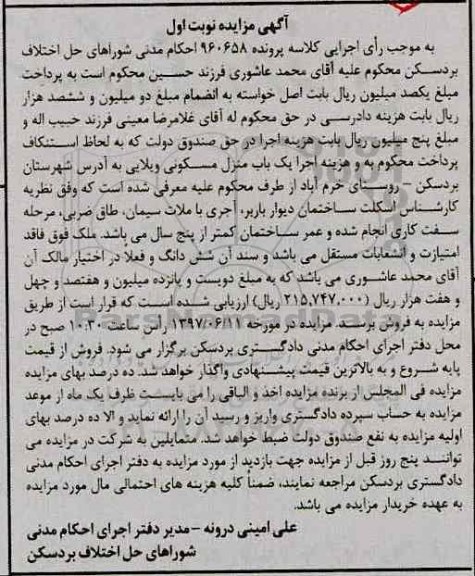 آگهی مزایده نوبت اول
به موجب رأی اجرایی کلاسه پرونده ۹۶۰۶۵۸ احکام مدنی شوراهای حل اختلاف
بردسکن محکوم علیه آقای محمد عاشوری فرزند حسین محکوم است به پرداخت
مبلغ یکصد میلیون ریال بابت اصل خواسته به انضمام مبلغ دو میلیون و ششصد هزار
ریال بابت هزینه دادرسی در حق محکوم له آقای غلامرضا معینی فرزند حبیب اله و
مبلغ پنج میلیون ریال بابت هزینه اجرا در حق صندوق دولت که به لحاظ استنکاف
پرداخت محکوم به و هزینه اجرا یک باب منزل مسکونی ویلایی به آدرس شهرستان
بردسکن – روستای خرم آباد از طرف محکوم علیه معرفی شده است که وفق نظریه
کارشناس اسکلت ساختمان دیوار باربر، آجری با ملات سیمان، طاق ضربی، مرحله
سفت کاری انجام شده و عمر ساختمان کمتر از پنج سال می باشد. ملک فوق فاقد
امتیازت و انشعابات مستقل می باشد و سند آن شش دانگ و فعلا در اختیار مالک آن
آقای محمد عاشوری می باشد که به مبلغ دویست و پانزده میلیون و هفتصد و چهل
و هفت هزار ریال (۲۱۵,۷۴۷,۰۰۰ ریال) ارزیابی شده است که قرار است از طریق
مزایده به فروش برسد. مزایده در مورخه ۱۳۹۷/۰۶/۱۱ راس ساعت ۱۰:۳۰ صبح در
محل دفتر اجرای احکام مدنی دادگستری بردسکن برگزار می شود. فروش از قیمت
پایه شروع و به بالاترین قیمت پیشنهادی واگذار خواهد شد. ده درصد بهای مزایده
مزایده فی المجلس از برنده مزایده اخذ و الباقی را می بایست ظرف یک ماه از موعد
مزایده به حساب سپرده دادگستری واریز و رسید آن را ارائه نماید و الا ده درصد بهای
اولیه مزایده به نفع صندوق دولت ضبط خواهد شد. متمایلین به شرکت در مزایده می
توانند پنج روز قبل از مزایده جهت بازدید از مورد مزایده به دفتر اجرای احکام مدنی
دادگستری بردسکن مراجعه نمایند، ضمناً کلیه هزینه های احتمالی مال مورد مزایده
به عهده خریدار مزایده می باشد.
علی امینی درونه – مدیر دفتر اجرای احکام مدنی
شوراهای حل اختلاف بردسکن